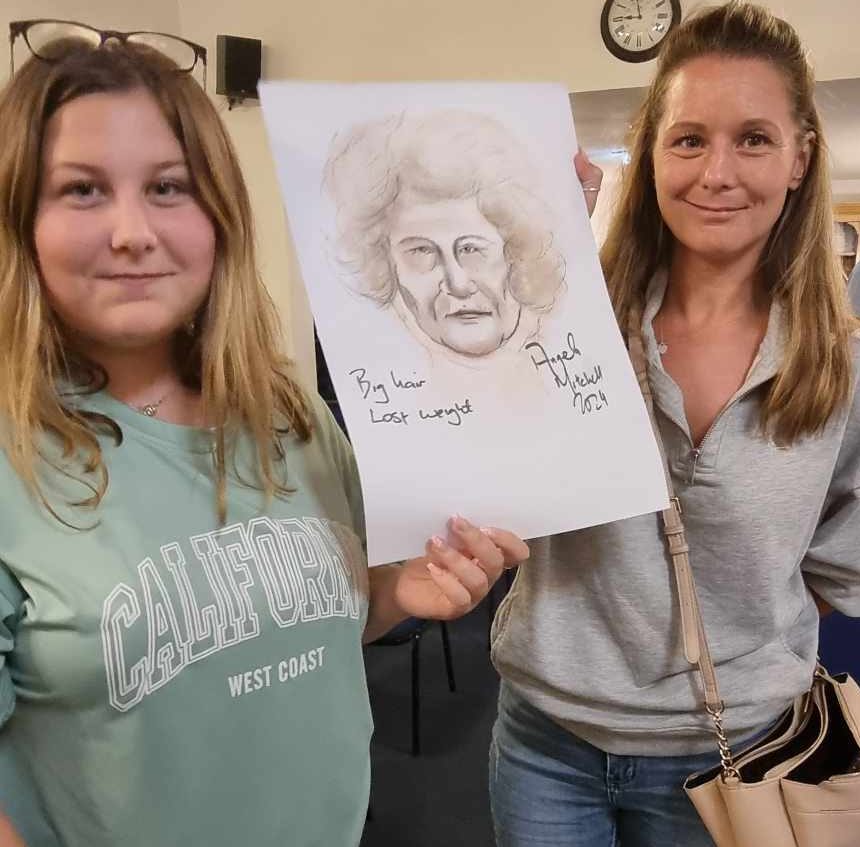 Big hair
Lost weight
Angela
Mitchell
2024
CALIFORN
WEST COAST